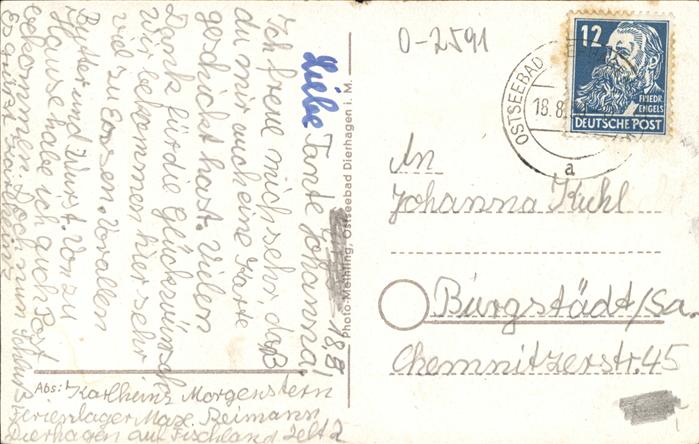 Liebe Tante Johanna,
Ich freue mich sehr, daß
du mir auch eine Karte
geschickt hast. Vielen
Dank für die Glückwünsche
wir bekommen hier sehr
viel zu Essen. Vor allen
Butter und Wurst. Von zu
Hause habe ich auch Post
bekommen. Doch nun Schluß
Es grüßt Karlheinz
18.8.
Photo-Mehlling, Ostseebad Dierhagen i. M.
Abs.: Karlheinz Morgenstern
Ferienlager Max Reimann
Dierhagen auf Fischland Zelt 2
0-2591
OSTSEEBAD
18.8.
a
12
FRIEDR.
ENGELS
DEUTSCHE POST
An
Johanna Kuhl
Burgstädt/Sa.
Chemnitzerstr. 45